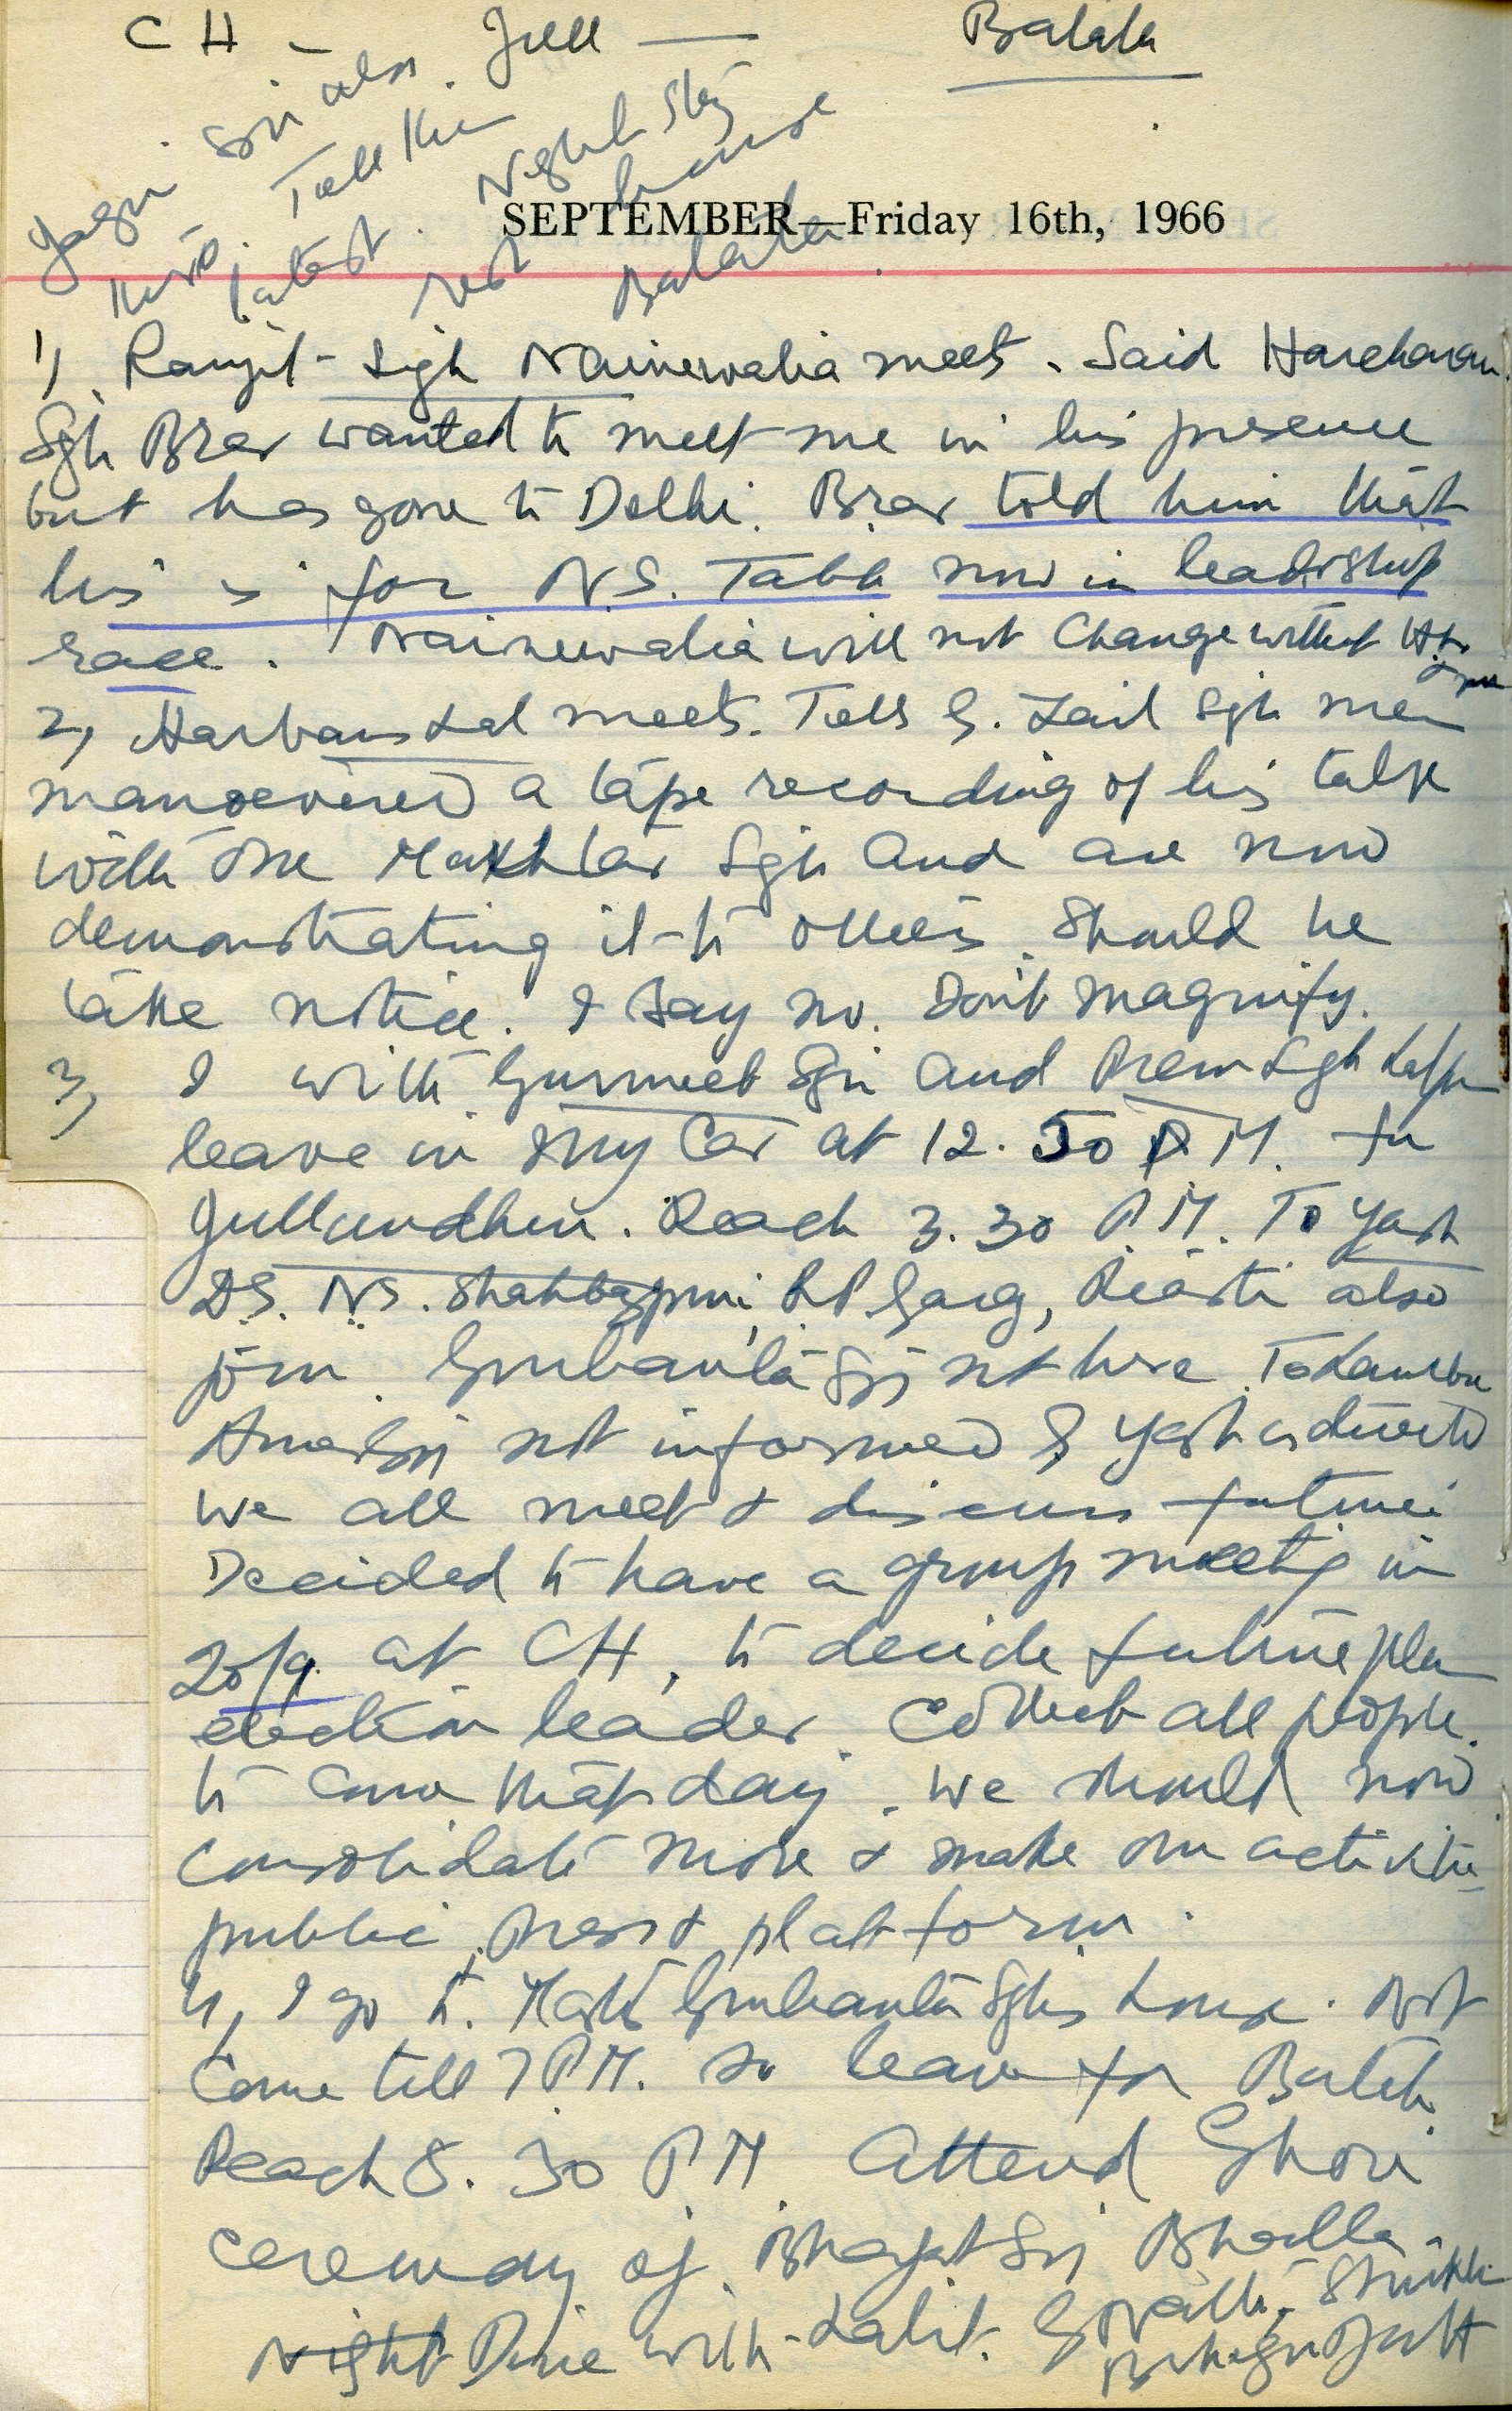 CH - Jull — Batala
Yagni Sri also
here. Tell him
latest. Night Stay
rest house
Batala
SEPTEMBER—Friday 16th, 1966
1) Ranjit Sigh Nainewalia meets. Said Harcharan
Sgh Brar wanted to meet me in his presence
but has gone to Delhi. Brar told him that
his is for N.S. Talib now in leadership
race. Nainewalia will not change without
2) Harbans Lal meets. Tells G. Zail Sgh men
manoevered a tape recording of his talk
with one Makhtar Sgh and are now
demonstrating it to others. Should he
take notice. I say no. Don't magnify.
3) I with Gurmeet Sgh and Prem Sgh
leave in my Car at 12.50 P.M. for
Jullundhur. Reach 3.30 P.M. To Yash
DS. NS. Shahbazpuri, RP Garg, also
join. Gurbanta Sgh not here.
not informed Yash as directed
We all meet & discuss future
Decided to have a group meetig in
20/9. at CH, to decide future plan
election leader. Collect all people.
to come that day. We should now
consolidate more & make our activities
public, press & platform.
4) I go to Master Gurbanta Sghs house. Not
come till 7 PM. So leave for Batala.
Reach 8.30 PM Attend
ceremony of Bhagat Sgh Bhalla.
Night Dine with Lalit.